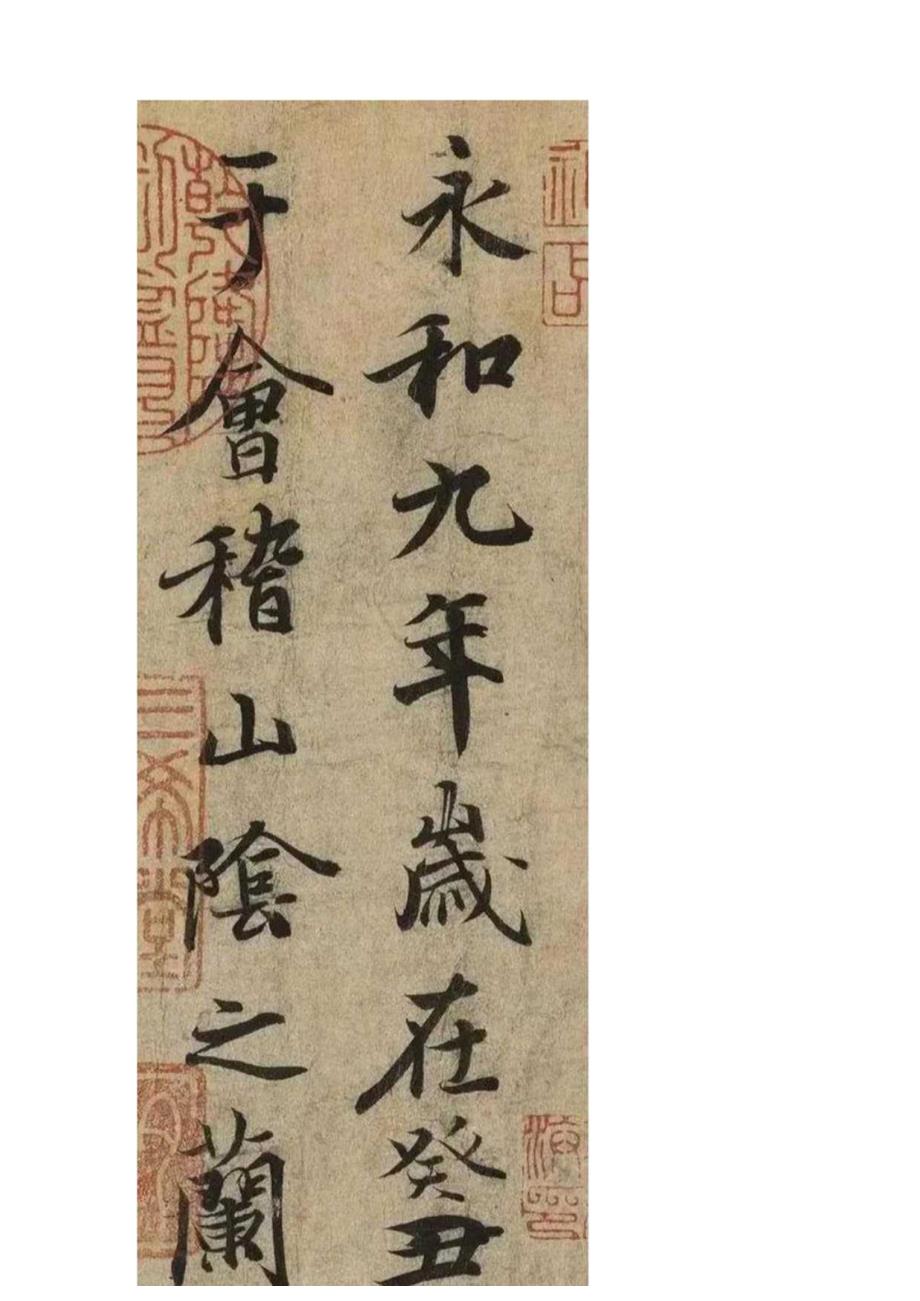 永和九年歲在癸丑
于會稽山陰之蘭
三希堂